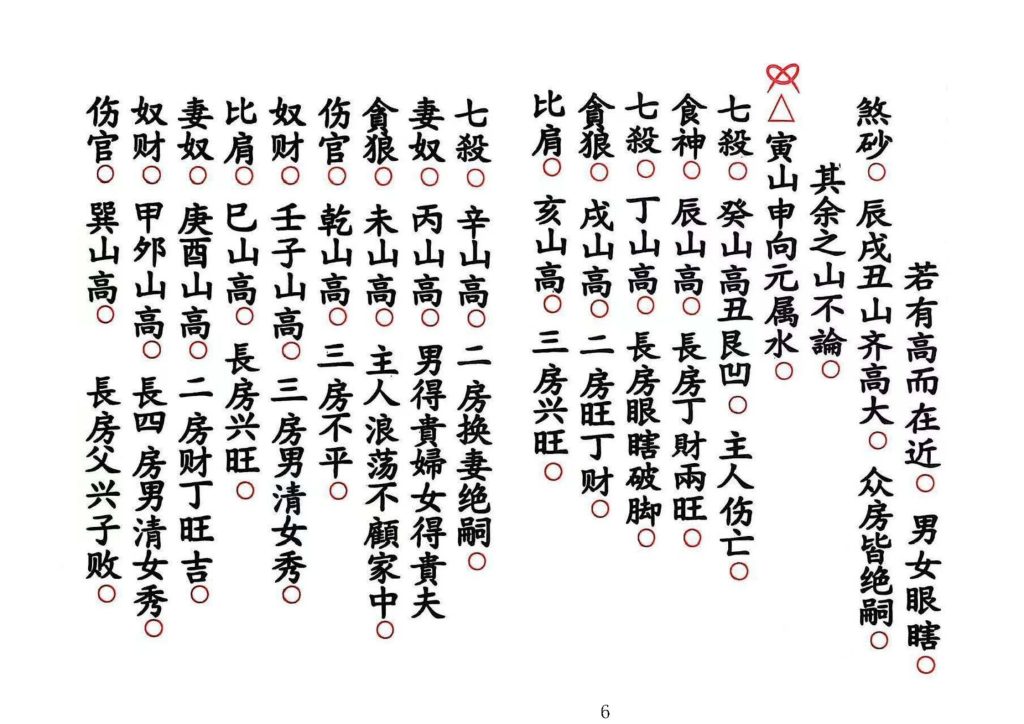 若有高而在近○男女眼瞎○
煞砂○辰戌丑山齐高大○众房皆绝嗣○
其余之山不論○
△寅山申向元属水○
七殺○癸山高丑艮凹○主人伤亡○
食神○辰山高○長房丁財兩旺○
七殺○丁山高○長房眼瞎破脚○
貪狼○戌山高○二房旺丁财○
比肩○亥山高○三房兴旺○
七殺○辛山高○二房换妻绝嗣○
妻奴○丙山高○男得貴婦女得貴夫
貪狼○未山高○主人浪荡不顧家中○
伤官○乾山高○三房不平○
奴财○壬子山高○三房男清女秀○
比肩○巳山高○長房兴旺○
妻奴○庚酉山高○二房财丁旺吉○
奴财○甲夘山高○長四房男清女秀○
伤官○巽山高○長房父兴子败○
6